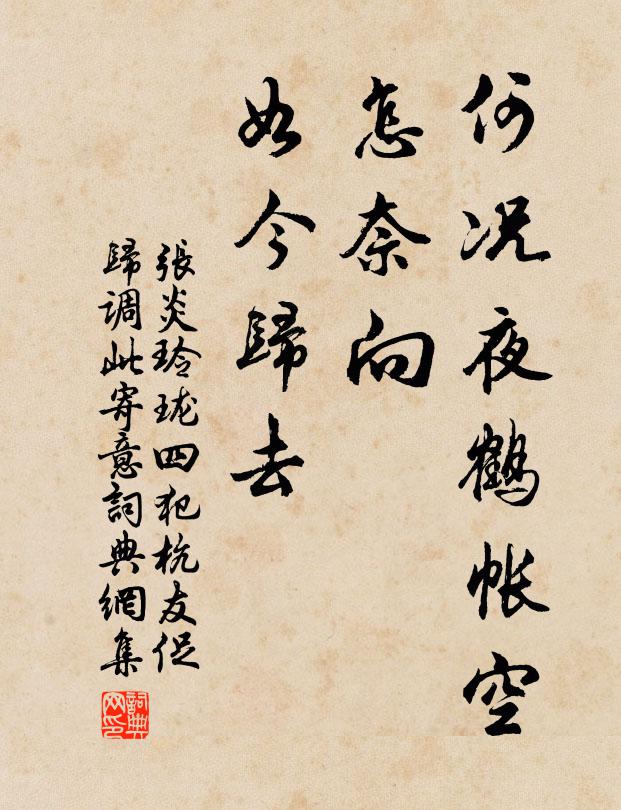 何况夜鶴帳空
怎奈向
如今歸去
張炎玲瓏四犯杭友促
歸調此寄意詞典網集
詞典网印